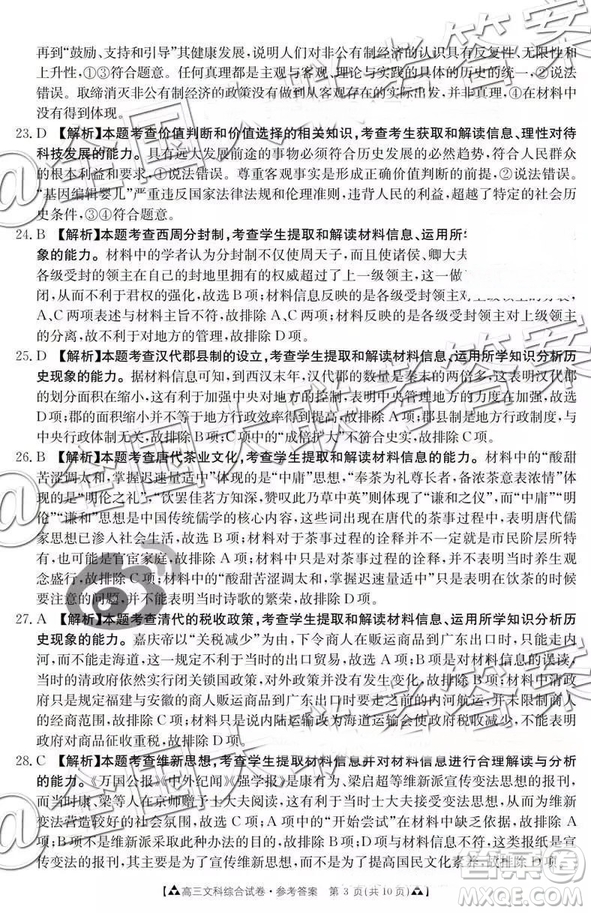 再到“鼓励、支持和引导”其健康发展,说明人们对非公有制经济的认识具有反复性、无限性和
上升性,①③符合题意。任何真理都是主观与客观、理论与实践的具体的历史的统一,②说法
错误。取缔消灭非公有制经济的政策没有做到从客观存在的事物出发,④在材料中
没有得到体现。
23. D 【解析】本题考查价值判断和价值选择的相关知识,考查考生获取和解读信息、理性对待
科技发展的能力。具有远大发展前途的事物必须符合历史发展的必然趋势,符合人民群众
的根本利益,①错误。尊重客观事实是形成正确价值判断的前提,②说法错误。
“基因编辑婴儿”严重违反国家法律法规和伦理准则,违背人民利益,超越了特定的社会历
史条件,③④符合题意。
24. B 【解析】本题考查西周分封制,考查学生提取和解读材料信息、运用所
象的能力。材料中的学者认为分封制不仅使周天子,而且使诸侯、卿大夫
各级受封的领主在自己的封地里拥有的权威超过了上一级领主,这一做
闭,不利于君权的强化,故选B项;材料信息反映的是各级受封领主对
A、C两项表述与材料主旨不符,故排除A、C两项;材料反映的是各级领主与上级领主
的分离,故不利于对地方的管理,故排除D项。
25. D 【解析】本题考查汉代郡县制的设立,考查学生提取和解读材料信息,运用所学知识分析历
史现象的能力。据材料信息可知,到西汉末年,汉代郡的数量是秦末的两倍多,这表明汉代郡
的划分面积在缩小,这有利于加强中央对地方的统治,表明中央管理地方的力度在加大,故选
D项;郡的面积缩小并不等于地方行政效率得到提高,故排除A项;郡县制是地方行政制度,与
中央行政体制无关,故排除B项;材料中的“成倍扩大”不符合史实,故排除C项。
26. B 【解析】本题考查唐代茶业文化,考查学生提取和解读材料信息的能力。材料中的“酸甜
苦涩调太和,掌握迟速量适中”体现的是“中庸”思想,“奉茶为礼尊长者,备浓茶意表浓情”体
现的是“明伦之礼”,“饮罢佳茗方知深,赞叹此乃草中英”则体现了“谦和之仪”,而“中庸”“明
伦”“谦和”思想是中国传统儒学的核心内容,这些词出现在唐代的茶事过程中,表明唐代儒
家思想已与生活融合,故选B项;对茶事过程的诠释并不一定就是市民阶层所特
有,也有可能是官宦家庭,故排除A项;材料中的只是对茶事的诠释,并不表明当时养生观
念盛行,故排除C项;材料中的“酸甜苦涩调太和,掌握迟速量适中”只是表明在饮茶中要善
于养性,并不能表明当时诗歌的繁荣,故排除D项。
27. A 【解析】本题考查清代的税收政策,考查学生提取和解读材料信息、运用所学知识分析历
史现象的能力。嘉庆帝以“关税减少”为由,下令商人在贩运商品到广东出口时,只能走内河,
而不能走海道,这一规定不利于当时的出口贸易,故选A项;B项是对材料信息的误读,
当时的清政府依然实行闭关锁国政策,对外政策并没有发生变化,故排除B项;材料中清政
府只是规定福建与安徽的商人贩运商品到广东出口时要走境内的内河航运,并未限制商人
的经商范围,故排除C项;材料只是说内陆航运改为海道运输影响了关税,并不能表明清政
府对商品征收重税,故排除D项。
28. C 【解析】本题考查维新思想,考查学生提取材料信息并对材料信息进行合理解读与分析
的能力。《万国公报》《中外纪闻》《强学报》是康有为、梁启超等维新派宣传变法思想的报刊,
而当时康、梁等人在京师赠予士大夫阅读,这有利于打开士大夫的思想闸门,从而为维新
变法营造较好的社会氛围,故选C项;A项中的“开始尝试”在材料中缺乏依据,故排除A项;
B项中的维新派采取此种办法的目的与材料信息不符,故排除B项;这些报纸是宣
传变法的报刊,其并未起到了提高国民文化素质的作用,故排除D项。
高三文科综合试卷·参考答案 第 3 页(共 10 页)
@全国大联考答案